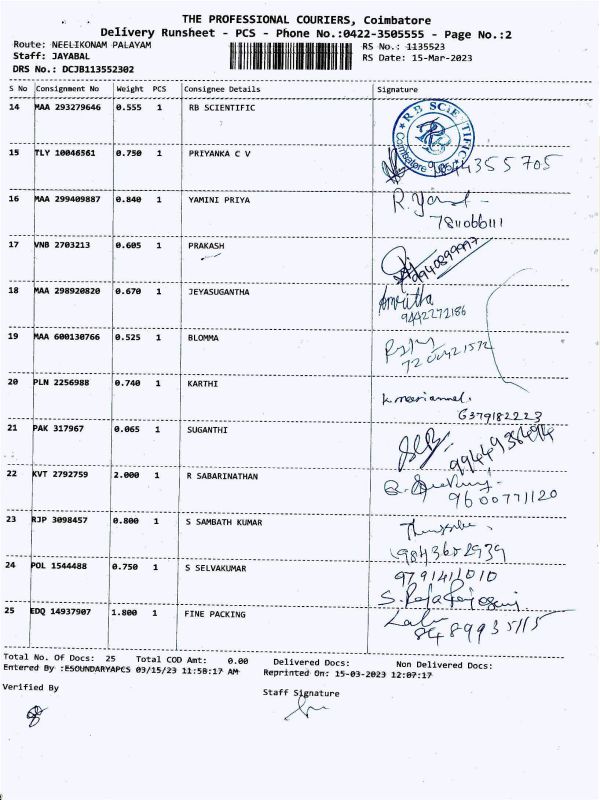 THE PROFESSIONAL COURIERS, Coimbatore
Delivery Runsheet - PCS - Phone No.:0422-3505555 - Page No.:2
Route: NEELIKONAM PALAYAM
RS No.: 1135523
Staff: JAYABAL
RS Date: 15-Mar-2023
DRS No.: DCJB113552302
S No Consignment No Weight PCS Consignee Details Signature
14 MAA 293279646 0.555 1 RB SCIENTIFIC
RB SCIENTIFIC Coimbatore
15 TLY 10046561 0.750 1 PRIYANKA C V
16 MAA 299409887 0.840 1 YAMINI PRIYA
17 VNB 2703213 0.605 1 PRAKASH
18 MAA 298920820 0.670 1 JEYASUGANTHA Amritha
9442272186
19 MAA 600130766 0.525 1 BLOMMA
20 PLN 2256988 0.740 1 KARTHI
6379182223
21 PAK 317967 0.065 1 SUGANTHI
22 KVT 2792759 2.000 1 R SABARINATHAN
9600771120
23 RJP 3098457 0.800 1 S SAMBATH KUMAR
24 POL 1544488 0.750 1 S SELVAKUMAR 9791411010
25 EDQ 14937907 1.800 1 FINE PACKING
8489935115
Total No. Of Docs: 25 Total COD Amt: 0.00 Delivered Docs: Non Delivered Docs:
Entered By :ESOUNDARYAPCS 03/15/23 11:58:17 AM Reprinted On: 15-03-2023 12:07:17
Verified By Staff Signature